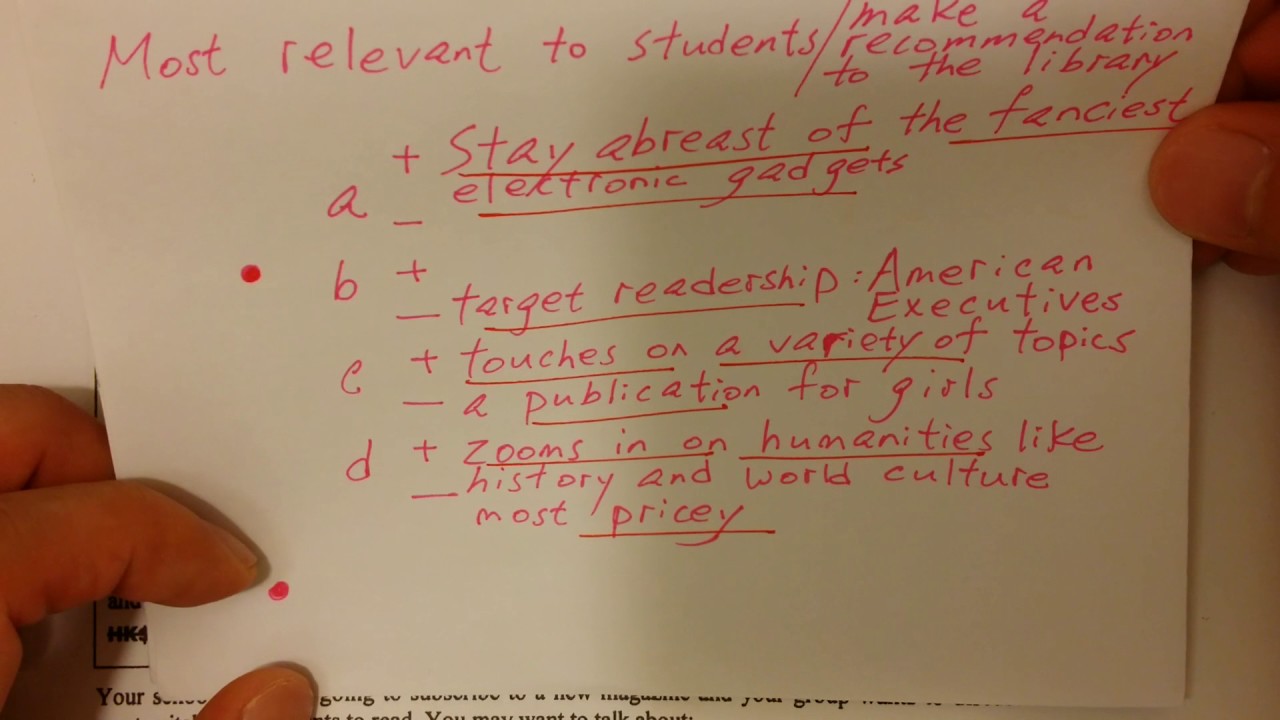 Most relevant to students/make a
recommendation
to the library
+ Stay abreast of the fanciest
a - electronic gadgets
b +
- target readership: American
Executives
c + touches on a variety of topics
- a publication for girls
d + zooms in on humanities like
- history and world culture
most pricey
and
HK$
Your going to subscribe to a new magazine and your group
to read. You may want to talk about: